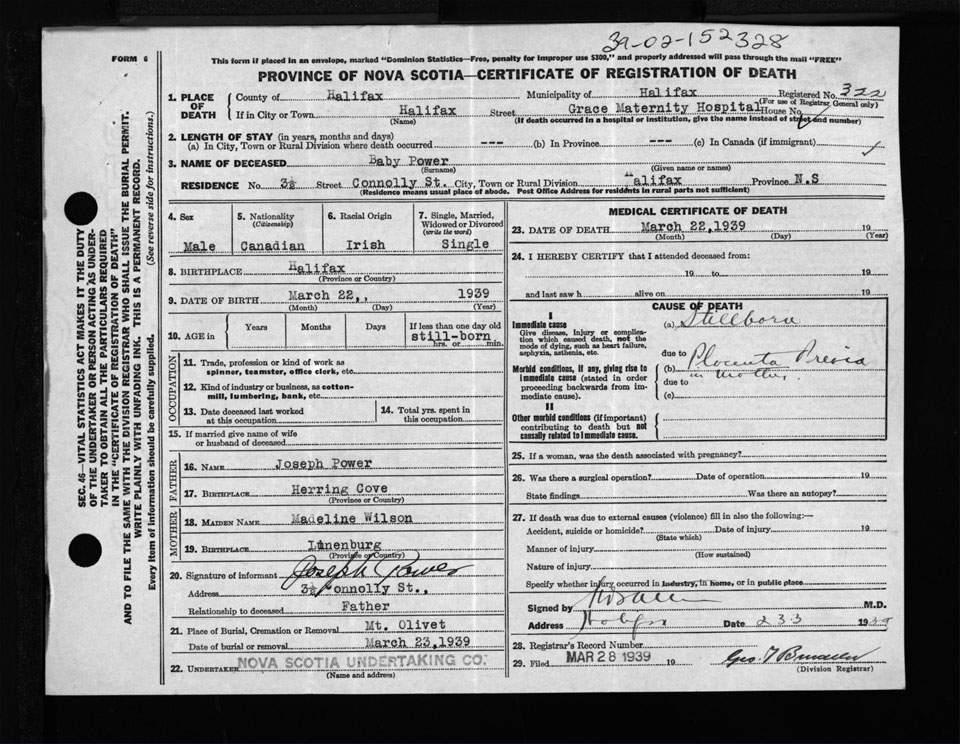 39-02-152328
FORM 6
This form if placed in an envelope, marked "Dominion Statistics—Free, penalty for improper use $300," and properly addressed will pass through the mail "FREE"
PROVINCE OF NOVA SCOTIA—CERTIFICATE OF REGISTRATION OF DEATH
1. PLACE OF DEATH
County of Halifax Municipality of Halifax Registered No. 322
(For use of Registrar General only)
If in City or Town Halifax Street Grace Maternity Hospital House No.
(Name) (If death occurred in a hospital or institution, give the name instead of street and number)
2. LENGTH OF STAY (in years, months and days)
(a) In City, Town or Rural Division where death occurred --- (b) In Province --- (c) In Canada (if immigrant)
3. NAME OF DECEASED Baby Power
(Surname) (Given name or names)
RESIDENCE No. 3½ Street Connolly St. City, Town or Rural Division Halifax Province N.S
(Residence means usual place of abode. Post Office Address for residents in rural parts not sufficient)
4. Sex Male
5. Nationality (Citizenship) Canadian
6. Racial Origin Irish
7. Single, Married, Widowed or Divorced (write the word) Single
8. BIRTHPLACE Halifax
(Province or Country)
9. DATE OF BIRTH March 22,, 1939
(Month) (Day) (Year)
10. AGE in Years Months Days If less than one day old
still-born
hrs. or min.
OCCUPATION
11. Trade, profession or kind of work as spinner, teamster, office clerk, etc.
12. Kind of industry or business, as cotton-mill, lumbering, bank, etc.
13. Date deceased last worked at this occupation
14. Total yrs. spent in this occupation
15. If married give name of wife or husband of deceased
FATHER
16. NAME Joseph Power
17. BIRTHPLACE Herring Cove
(Province or Country)
MOTHER
18. MAIDEN NAME Madeline Wilson
19. BIRTHPLACE Lunenburg
(Province or Country)
20. Signature of informant Joseph Power
Address 3½ Connolly St.,
Relationship to deceased Father
21. Place of Burial, Cremation or Removal Mt. Olivet
Date of burial or removal March 23,1939
22. UNDERTAKER NOVA SCOTIA UNDERTAKING CO.
(Name and address)
MEDICAL CERTIFICATE OF DEATH
23. DATE OF DEATH March 22,1939 19
(Month) (Day) (Year)
24. I HEREBY CERTIFY that I attended deceased from:
19 to 19
and last saw h alive on 19
CAUSE OF DEATH
I
Immediate cause
Give disease, injury or complication which caused death, not the mode of dying, such as heart failure, asphyxia, asthenia, etc.
(a) Stillborn
due to
Morbid conditions, if any, giving rise to immediate cause (stated in order proceeding backwards from immediate cause).
(b) Placenta Previa
in Mother.
due to
(c)
II
Other morbid conditions (if important) contributing to death but not causally related to immediate cause.
25. If a woman, was the death associated with pregnancy?
26. Was there a surgical operation? Date of operation 19
State findings Was there an autopsy?
27. If death was due to external causes (violence) fill in also the following:—
Accident, suicide or homicide? Date of injury 19
(State which)
Manner of injury
(How sustained)
Nature of injury
Specify whether injury occurred in industry, in home, or in public place
Signed by M.D.
Address Halifax Date 23 3 1939
28. Registrar's Record Number
29. Filed MAR 28 1939 19
(Division Registrar)
SEC. 46—VITAL STATISTICS ACT MAKES IT THE DUTY
OF THE UNDERTAKER OR PERSON ACTING AS UNDER-
TAKER TO OBTAIN ALL THE PARTICULARS REQUIRED
IN THE "CERTIFICATE OF REGISTRATION OF DEATH"
AND TO FILE THE SAME WITH THE DIVISION REGISTRAR WHO SHALL ISSUE THE BURIAL PERMIT.
WRITE PLAINLY WITH UNFADING INK. THIS IS A PERMANENT RECORD.
Every item of information should be carefully supplied. (See reverse side for instructions.)